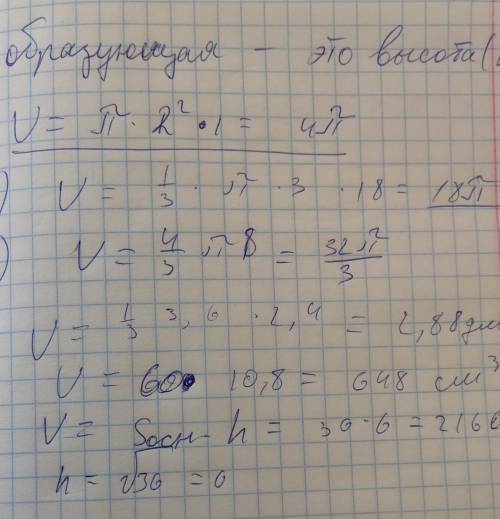 образующая - это высота(
V = π · 2² · 1 = 4π
) V = 1/3 · π · 3 · 18 = 18π
) V = 4/3 π 8 = 32π/3
V = 1/3 3,6 · 2,4 = 2,88 дм
V = 60 · 10,8 = 648 см³
V = Sосн · h = 36 · 6 = 216
h = √36 = 6